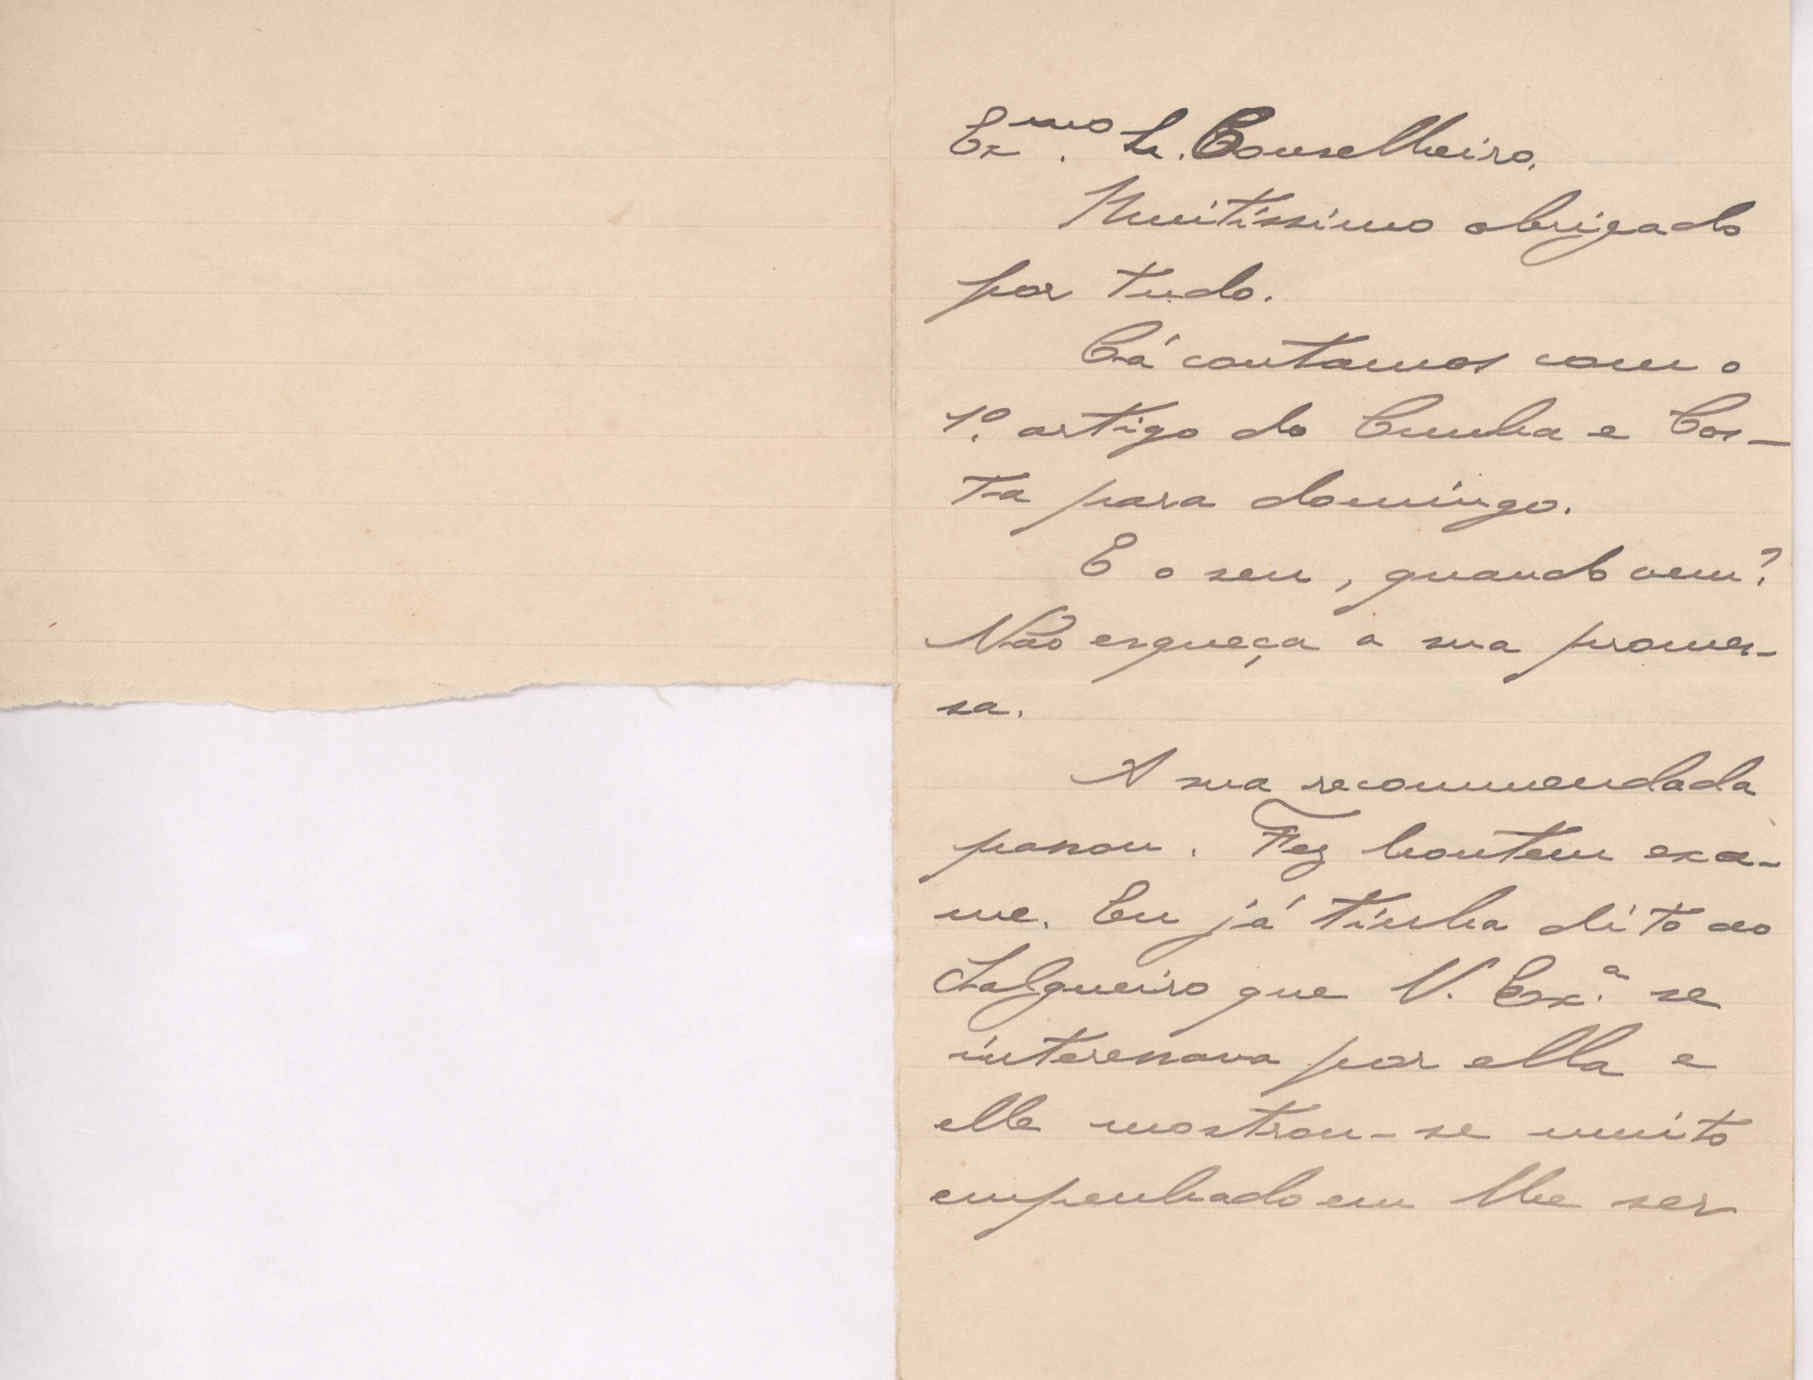 Exmo. Sr. Conselheiro.
Muitíssimo obrigado
por tudo.
Cá contamos com o
1.º artigo do Cunha e Cos-
ta para domingo.
E o seu, quando vem?
Não esqueça a sua promes-
sa.
A sua recommendada
passou. Fez hontem exa-
me. Eu já tinha dito ao
Salgueiro que V. Ex.ª se
interessava por ella e
elle mostrou-se muito
empenhado em lhe ser